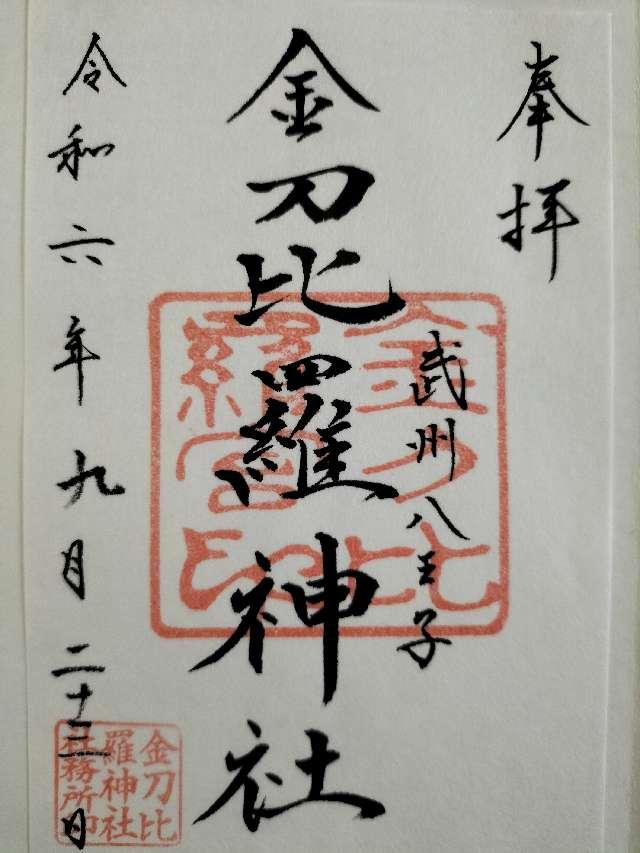 奉拝
武州八王子
金刀比羅神社
令和六年九月二十三日
金刀比
羅宮印
金刀比
羅神社
社務所印